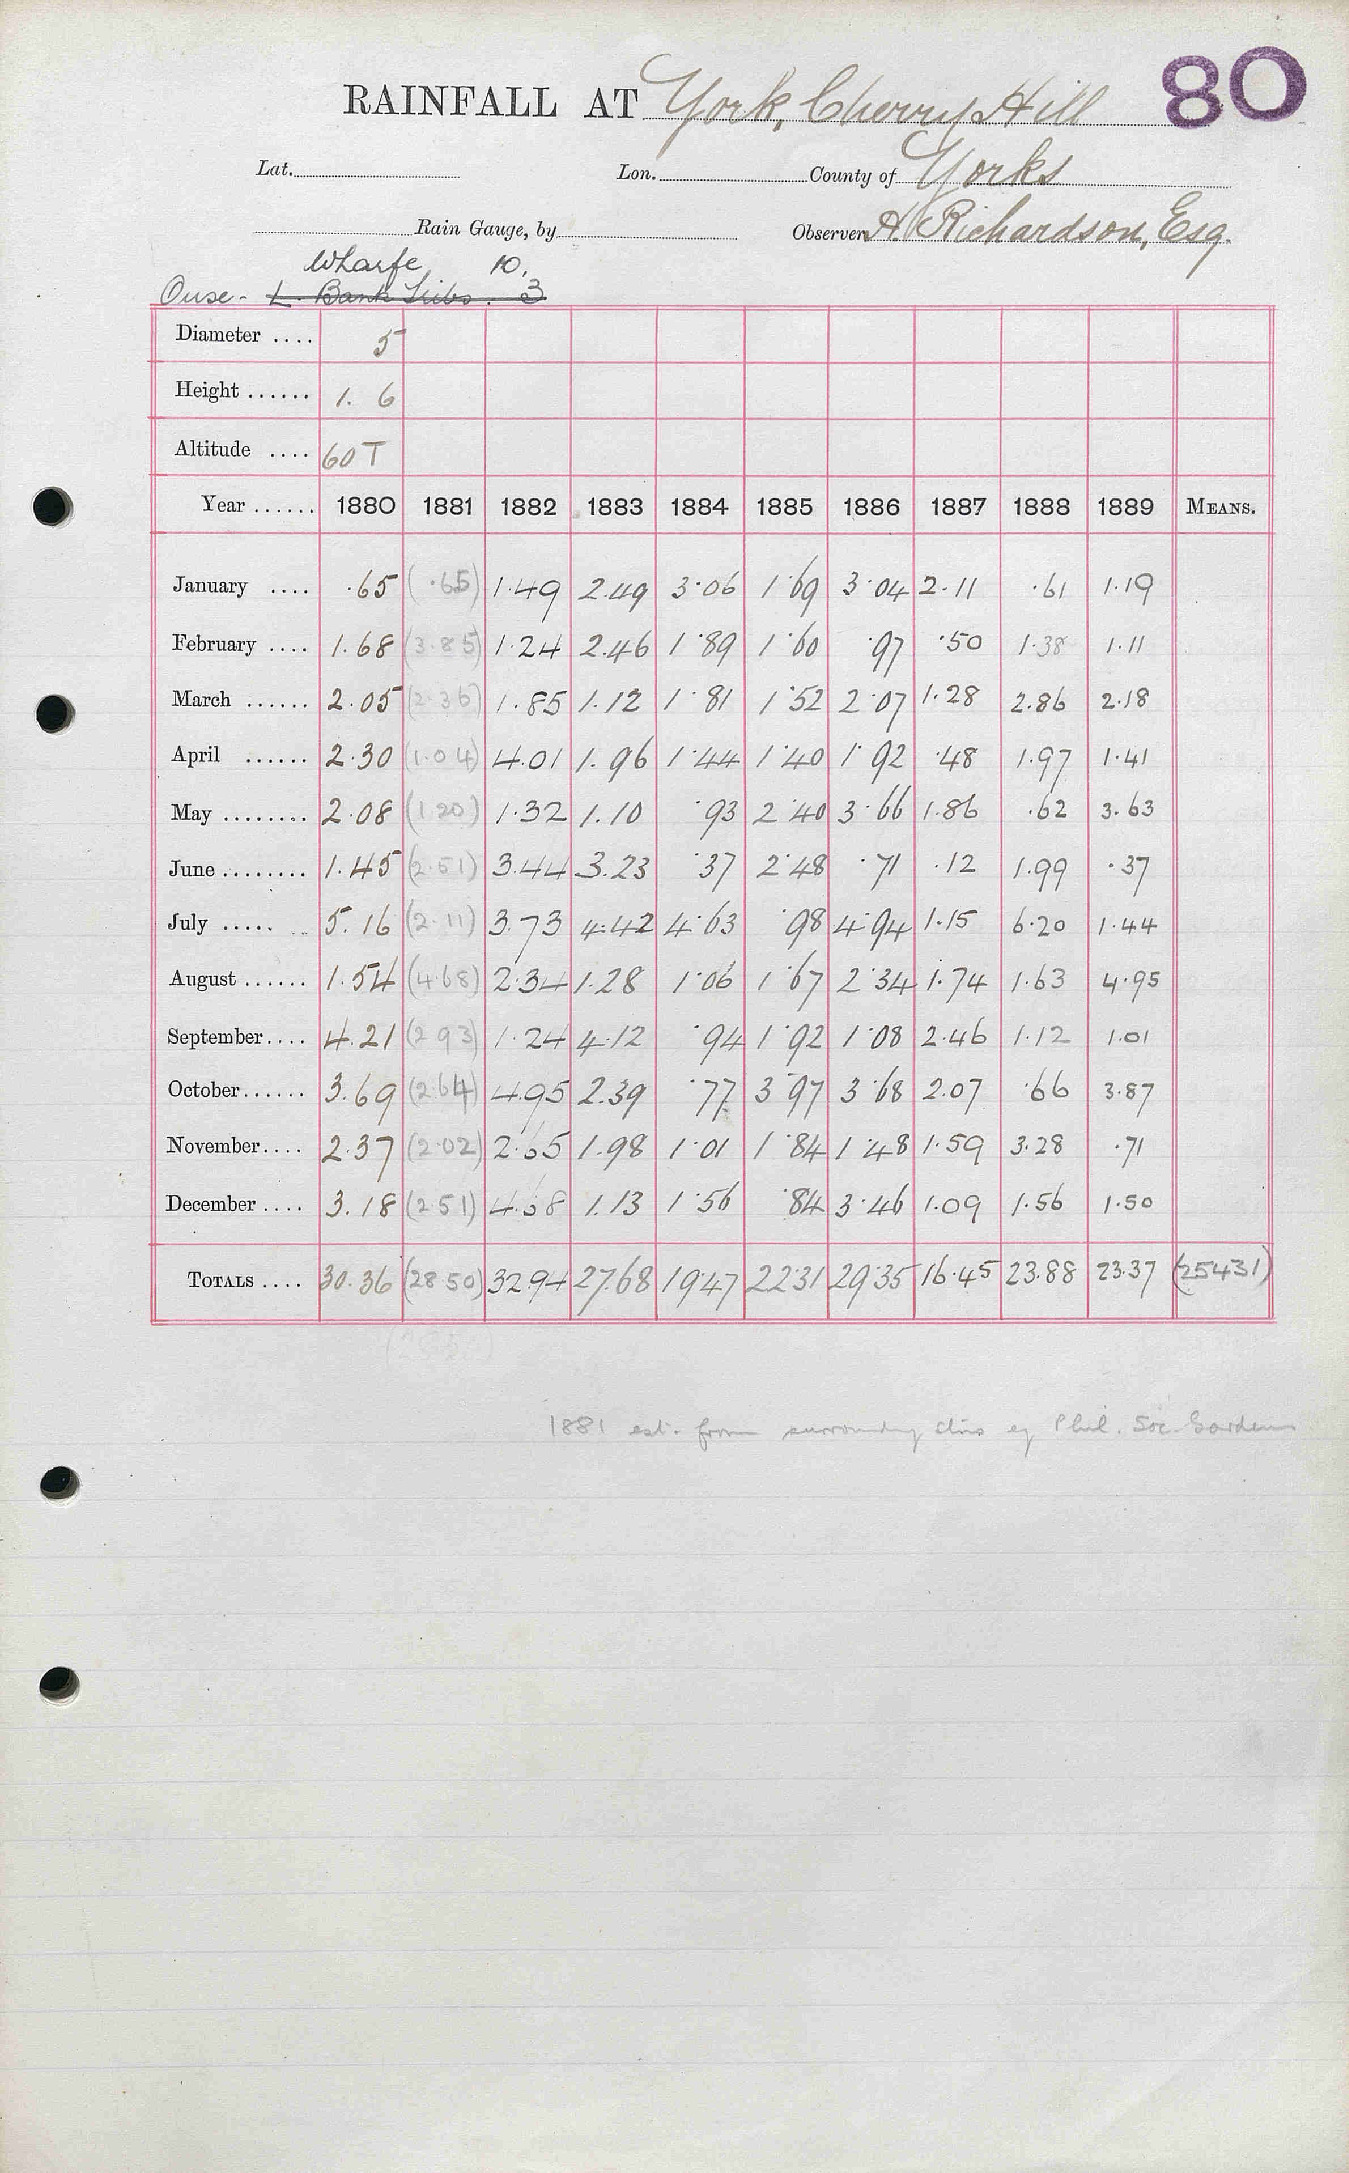 80
RAINFALL AT York, Cherry Hill
Lat. Lon. County of Yorks
Rain Gauge, by Observer A. Richardson, Esq.
Wharfe 10.
Ouse - L. Bank Tribs. 3
Diameter .... 5
Height ...... 1. 6
Altitude .... 60 T
Year ...... 1880 1881 1882 1883 1884 1885 1886 1887 1888 1889 MEANS.
January .... ·65 (·65) 1·49 2.49 3·06 1·69 3·04 2·11 ·61 1·19
February .... 1.68 (3·85) 1·24 2.46 1·89 1·60 ·97 ·50 1·38 1·11
March ...... 2.05 (2·36) 1.85 1.12 1·81 1·52 2·07 1·28 2.86 2·18
April ...... 2·30 (1·04) 4.01 1.96 1·44 1·40 1·92 ·48 1·97 1·41
May ........ 2·08 (1·20) 1·32 1.10 ·93 2·40 3·66 1·86 ·62 3·63
June ........ 1.45 (2·51) 3.44 3.23 ·37 2·48 ·71 ·12 1.99 ·37
July ..... 5.16 (2·11) 3.73 4.42 4·63 ·98 4·94 1·15 6·20 1·44
August ...... 1.54 (4·68) 2·34 1·28 1·06 1·67 2·34 1·74 1·63 4·95
September.... 4.21 (2·93) 1·24 4·12 ·94 1·92 1·08 2·46 1·12 1·01
October...... 3.69 (2·64) 4.95 2.39 ·77 3·97 3·68 2.07 ·66 3·87
November.... 2.37 (2·02) 2·65 1.98 1·01 1·84 1·48 1·59 3·28 ·71
December .... 3.18 (2·51) 4·68 1.13 1·56 ·84 3·46 1·09 1·56 1·50
TOTALS .... 30.36 (28·50) 32.94 27.68 19·47 22·31 29·35 16·45 23.88 23·37 (25431)
1881 est. from surrounding stns eg Phil. Soc. Gardens